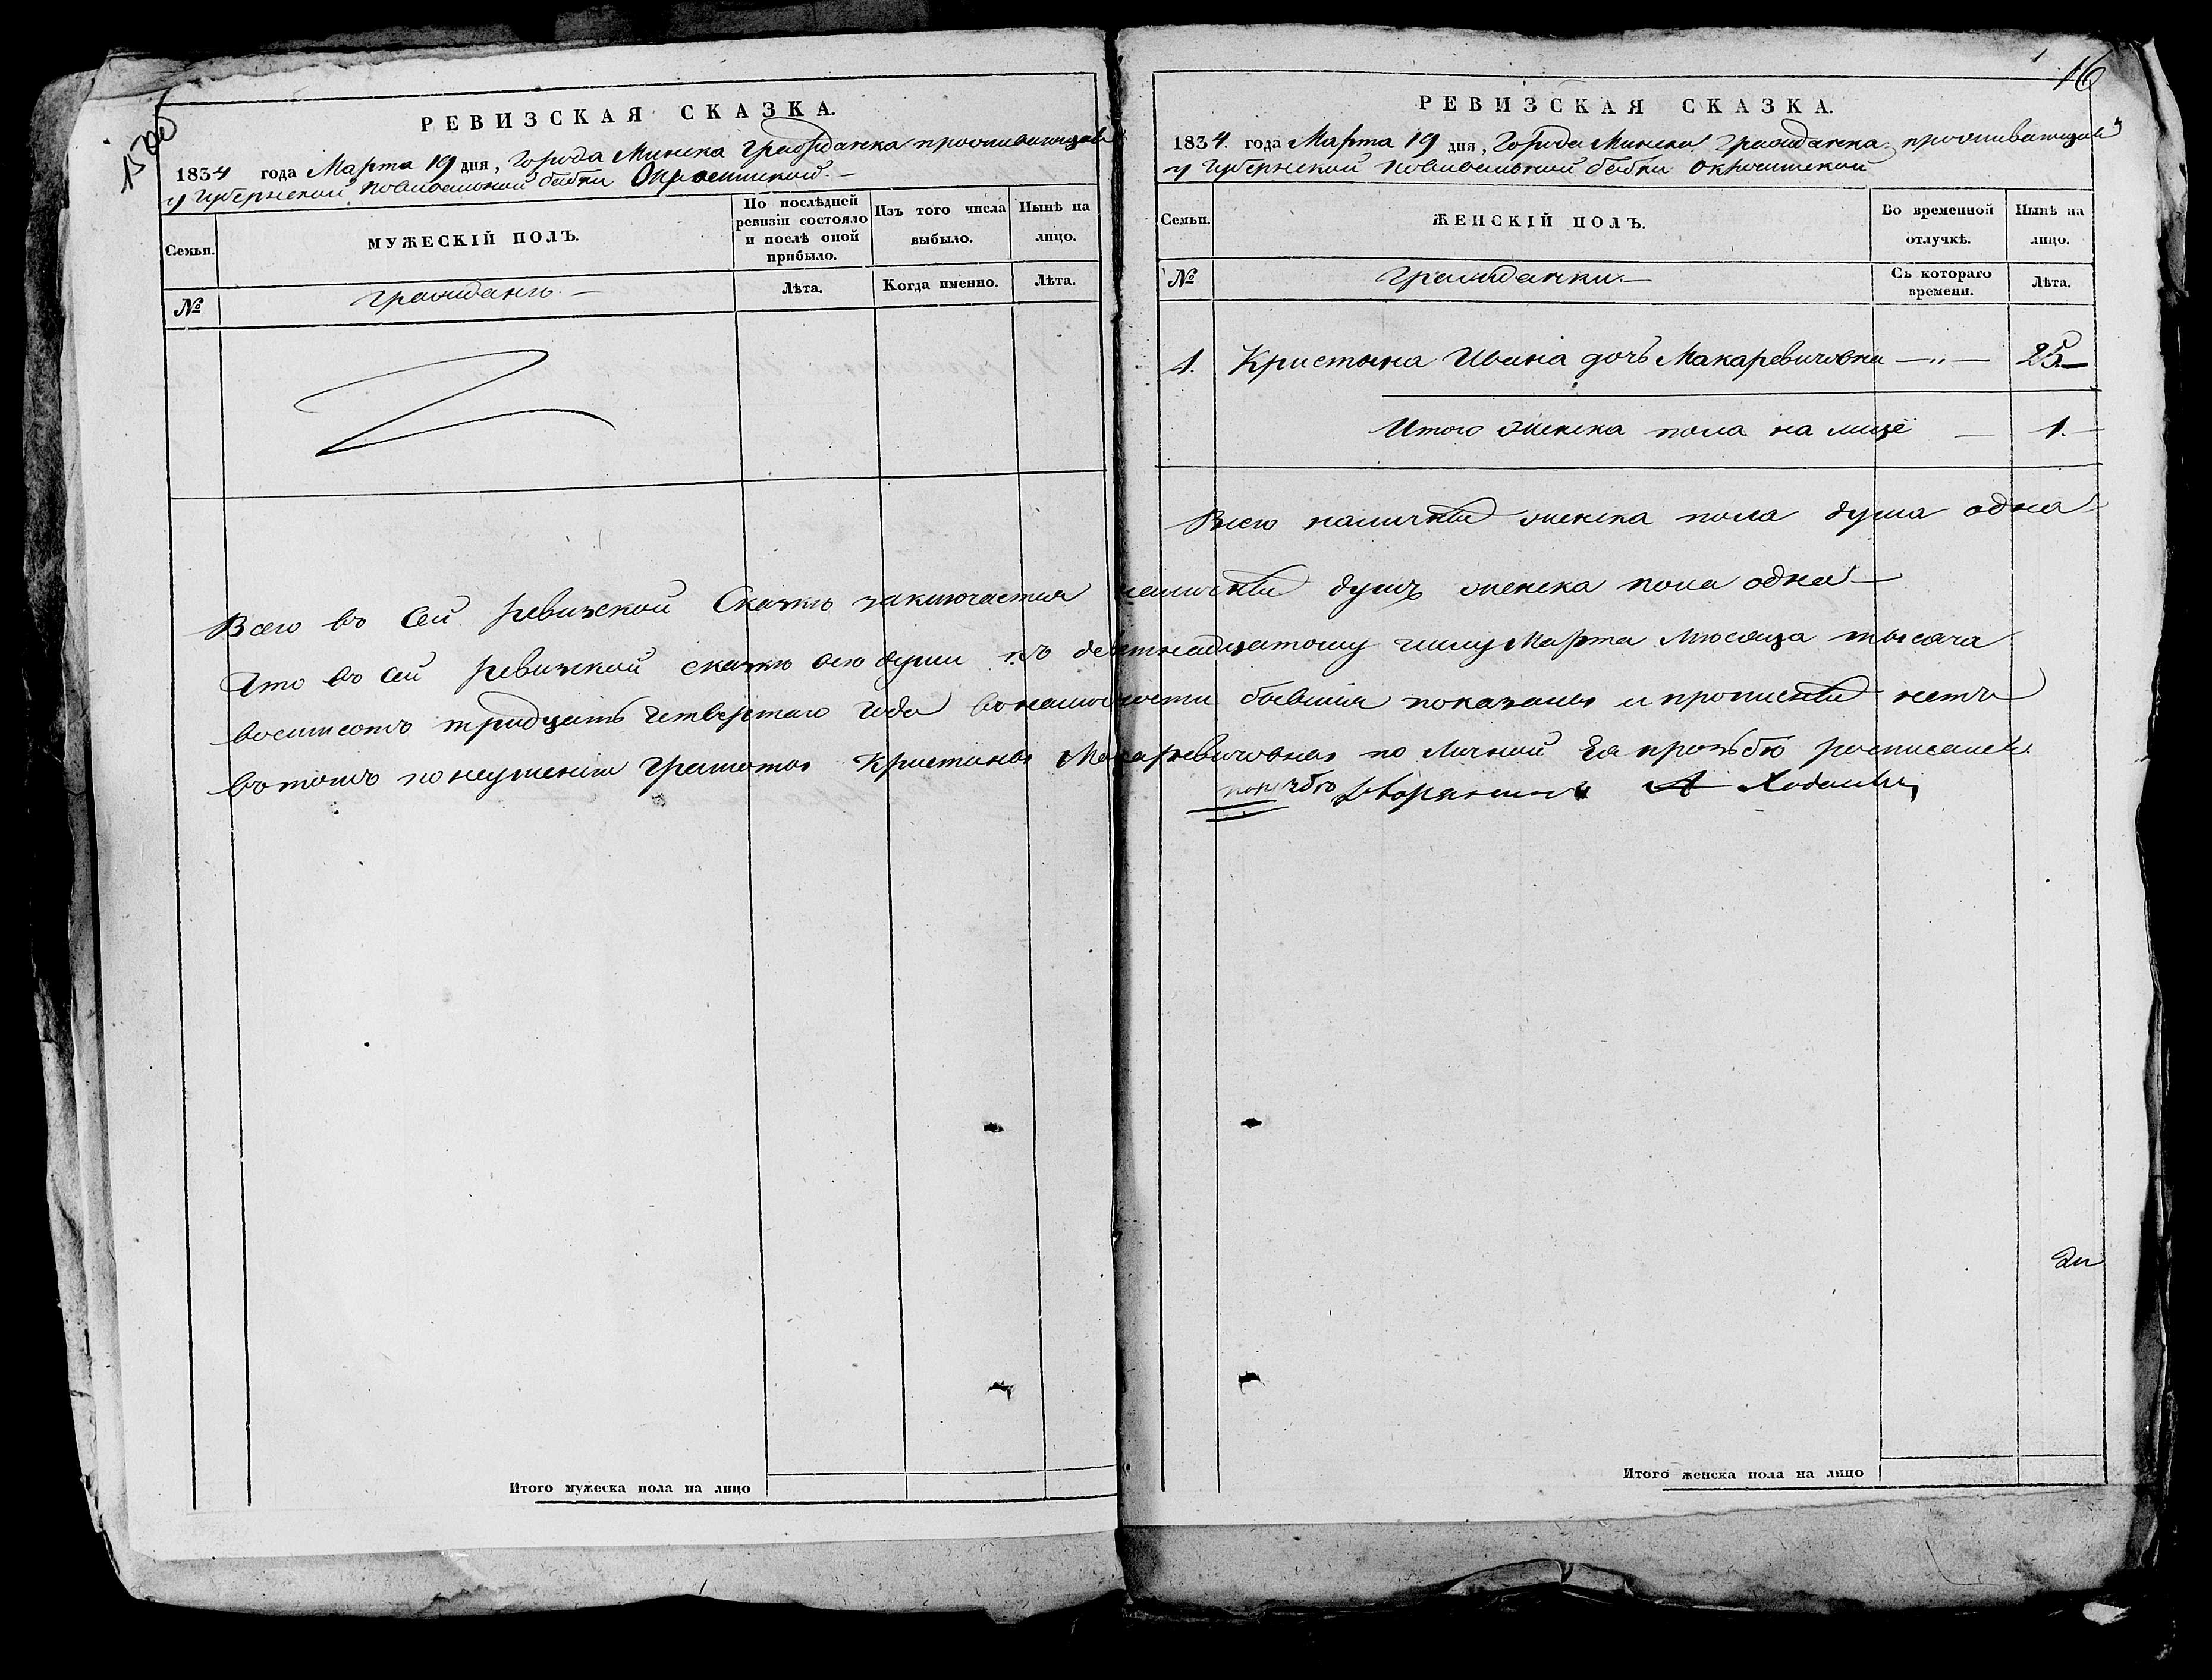 15 об
РЕВИЗСКАЯ СКАЗКА.
1834 года Марта 19 дня, Города Минска Гражданка проживающая
у Губернской повивальной бабки
Семьи.
МУЖЕСКІЙ ПОЛЪ.
По послѣдней ревизіи состояло и послѣ оной прибыло.
Изъ того числа выбыло.
Нынѣ на лицо.
№
Граждане. —
Лѣта.
Когда именно.
Лѣта.
Итого мужеска пола на лицо
16
РЕВИЗСКАЯ СКАЗКА.
1834. года Марта 19 дня, Города Минска Гражданка проживающая
у Губернской повивальной бабки
Семьи.
ЖЕНСКІЙ ПОЛЪ.
Во временной отлучкѣ.
Нынѣ на лицо.
№
Гражданки. —
Съ котораго времени.
Лѣта.
1. Кристына Ивана дочь Макаревичовна — „ — 25. —
Итого женска пола на лице — 1. —
Всего наличныхъ женска пола душа одна
Всего въ сей ревизской Сказкѣ заключается наличныхъ душъ женска пола одна —
Что въ сей ревизской сказкѣ всѣ души къ девятнадцатому числу Марта Мѣсяца тысяча
восемсотъ тридцать четвертаго года въ наличности бывшія показаны и прописныхъ нетъ
въ томъ по неумению Грамоты Кристыны Макаревичовны по Личной Ея прозьбѣ росписался.
Дворянинъ А
Итого женска пола на лицо